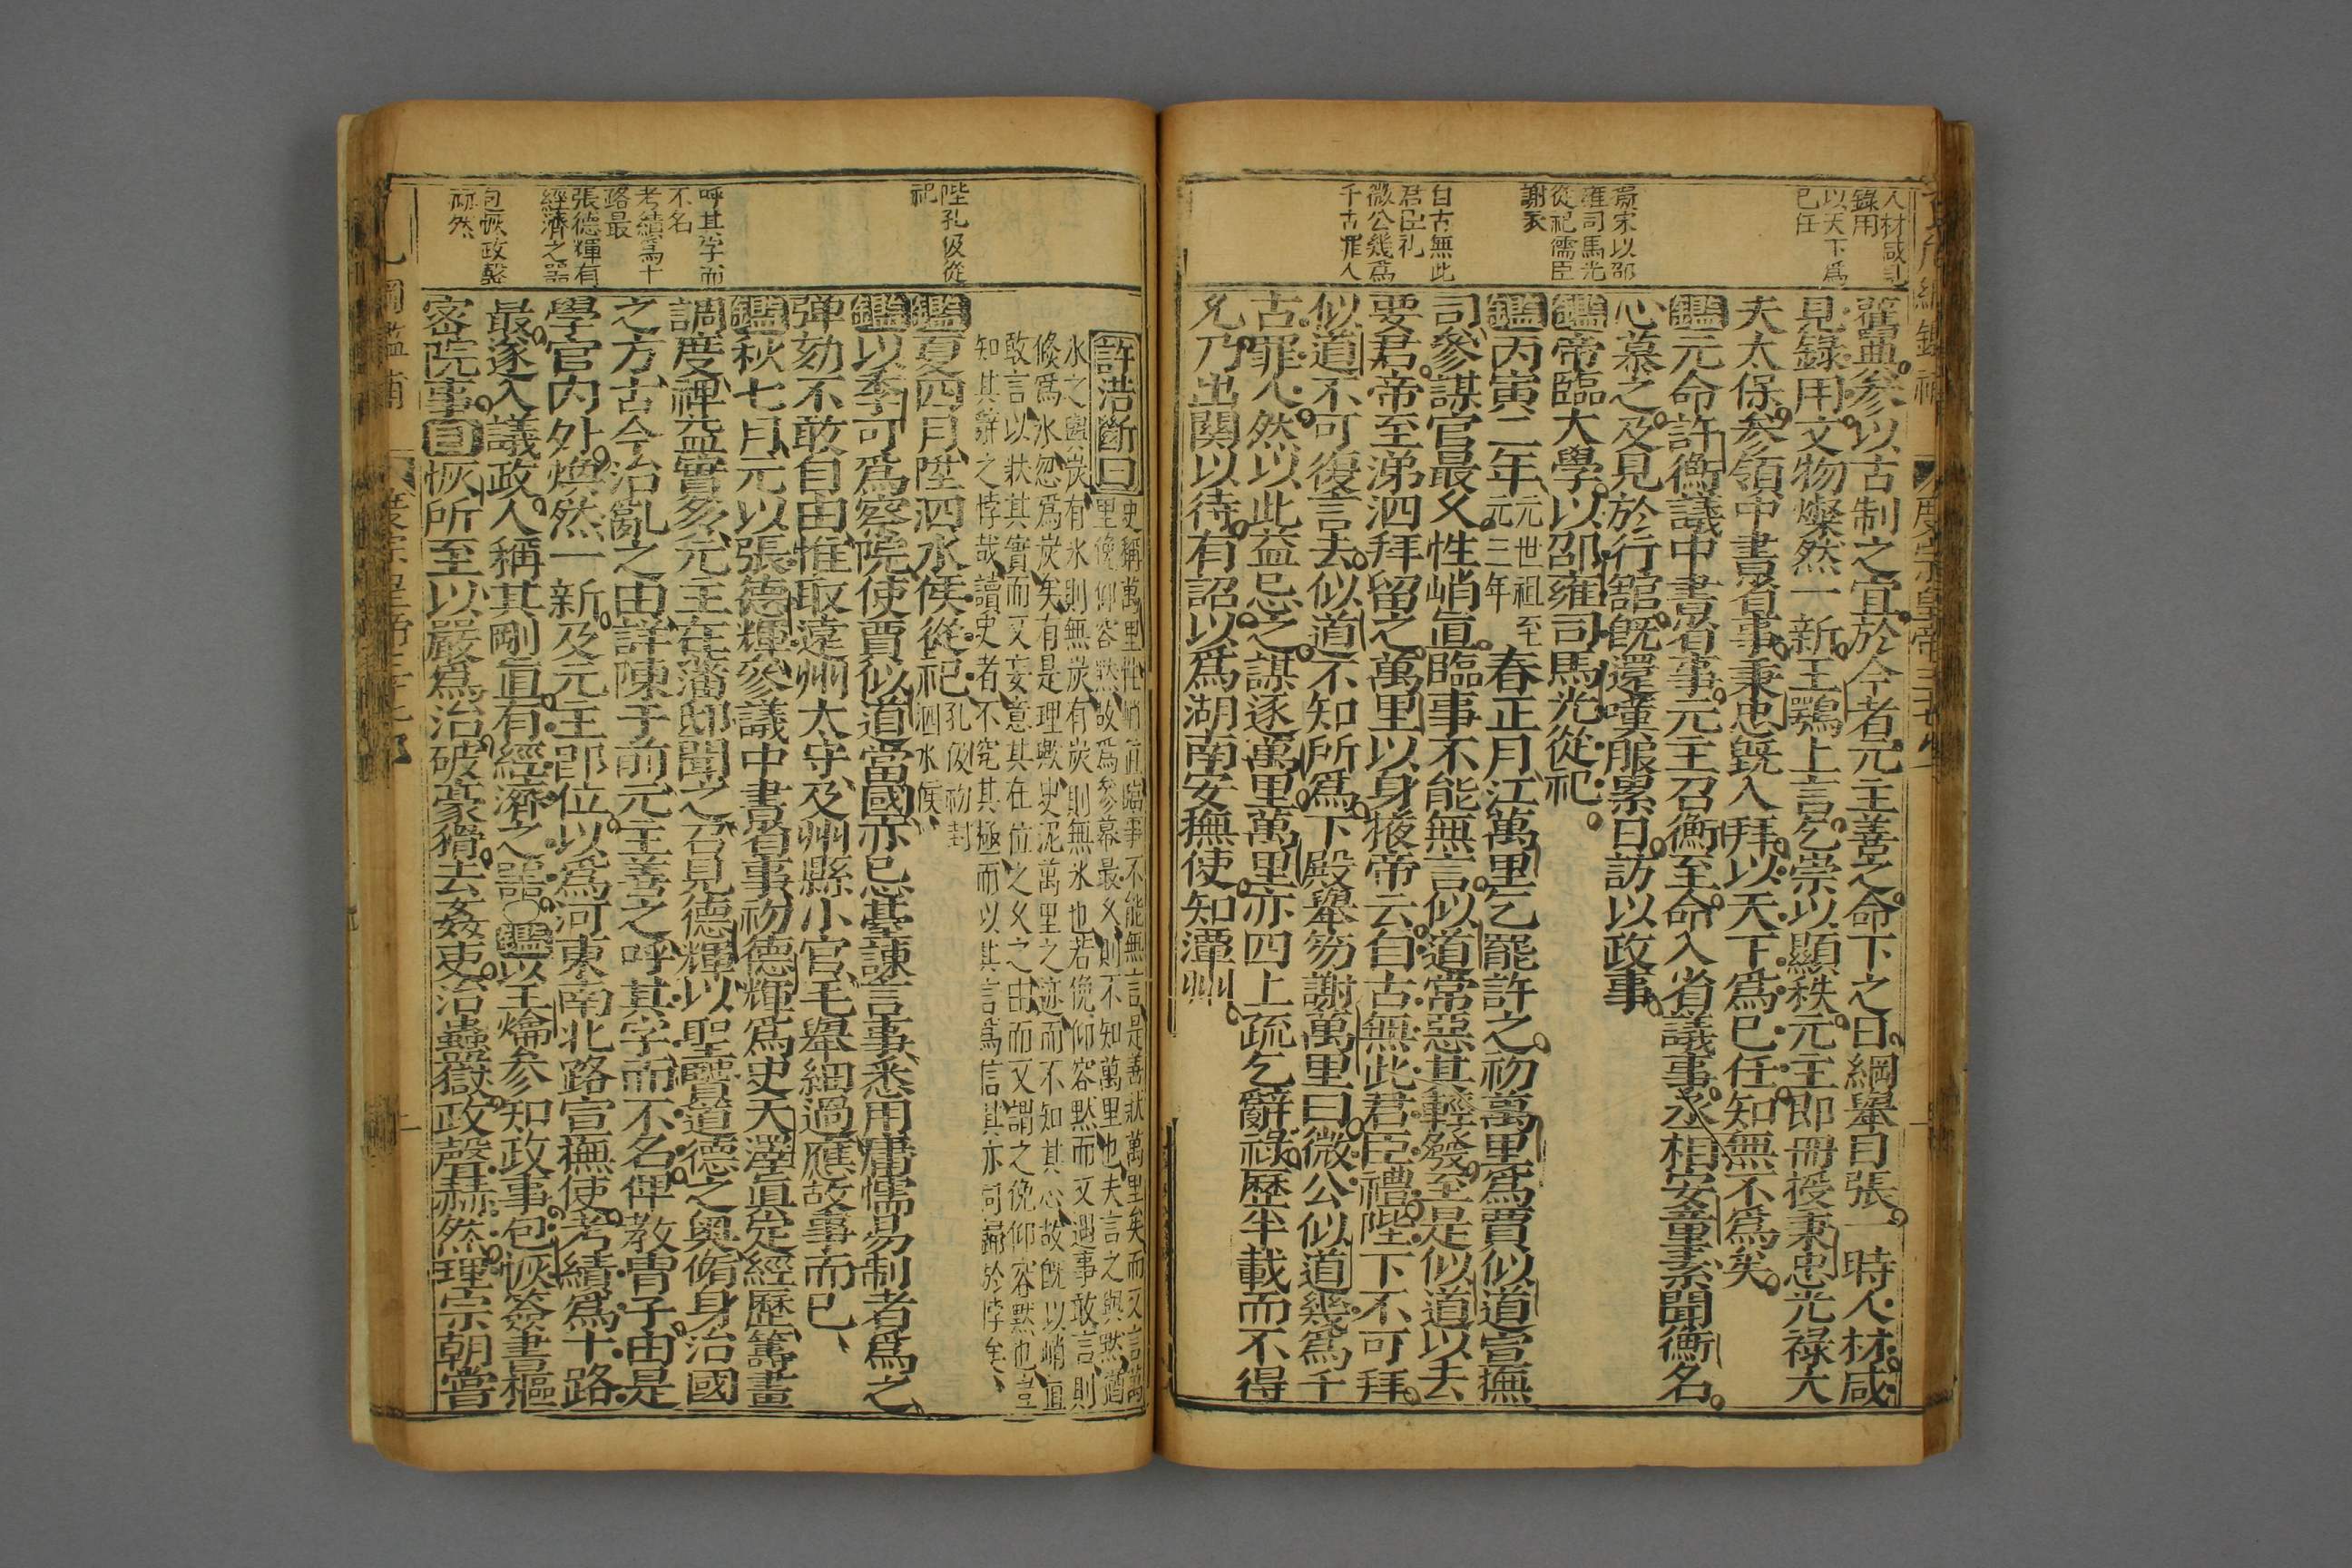 人材咸見
錄用
以天下爲
己任
舊典參以古制之宜於今者元主善之命下之日綱舉目張一時人材咸
見錄用文物燦然一新王鶚上言乞崇以顯秩元主即冊授秉忠光祿大
夫太保參領中書省事秉忠旣入拜以天下爲己任知無不爲矣
鑑元命許衡議中書省事元主召衡至命入省議事丞相安童素聞衡名
心慕之及見於行舘旣還嘆服累日訪以政事
雍司馬光
從祀儒臣
鑑帝臨大學以邵雍司馬光從祀
鑑丙寅二年元世祖至元三年春正月江萬里乞罷許之初萬里爲賈似道宣撫
司參謀官最久性峭直臨事不能無言似道常惡其輕發至是似道以去
自古無此
君臣礼
微公幾爲
千古罪人
要君帝至涕泗拜留之萬里以身掖帝云自古無此君臣禮陛下不可拜
似道不可復言去似道不知所爲下殿舉笏謝萬里曰微公似道幾爲千
古罪人然以此益忌之謀逐萬里萬里亦四上疏乞辭祿歷半載而不得
允乃出關以待有詔以爲湖南安撫使知潭州
許浩斷曰史稱萬里性峭直臨事不能無言是善狀萬里矣而又言萬
里俛仰容默故爲參幕最久則不知萬里也夫言之與默猶
水之與炭有水則無炭有炭則無水也若俛仰容默而又遇事敢言則
倏爲水忽爲炭矣有是理歟史泥萬里之迹而不知其心故旣以峭直
敢言以狀其實而又妄意其在位之久之由而又謂之俛仰容默也豈
知其辭之悖哉讀史者不究其極而以其言爲信其亦同歸於悖矣
陞孔伋從
祀
鑑夏四月陞泗水侯從祀孔伋初封泗水侯
鑑以季可爲察院使賈似道當國亦忌臺諫言事悉用庸懦易制者爲之
彈劾不敢自由惟取遠州太守及州縣小官毛舉細過應故事而已
鑑秋七月元以張德輝參議中書省事初德輝爲史天澤眞定經歷籌畫
呼其字而
不名
考績爲十
路最
張德輝有
經濟之器
調度裨益實多元主在藩邸聞之召見德輝以聖賢道德之奥脩身治國
之方古今治亂之由詳陳于前元主善之呼其字而不名俾教胄子由是
學官内外煥然一新及元主卽位以爲河東南北路宣撫使考績爲十路
最遂入議政人稱其剛直有經濟之器○鑑以王爚參知政事包恢簽書樞
包恢政聲
赫然
密院事目恢所至以嚴爲治破豪猾去姦吏治蠱獄政聲赫然理宗朝嘗